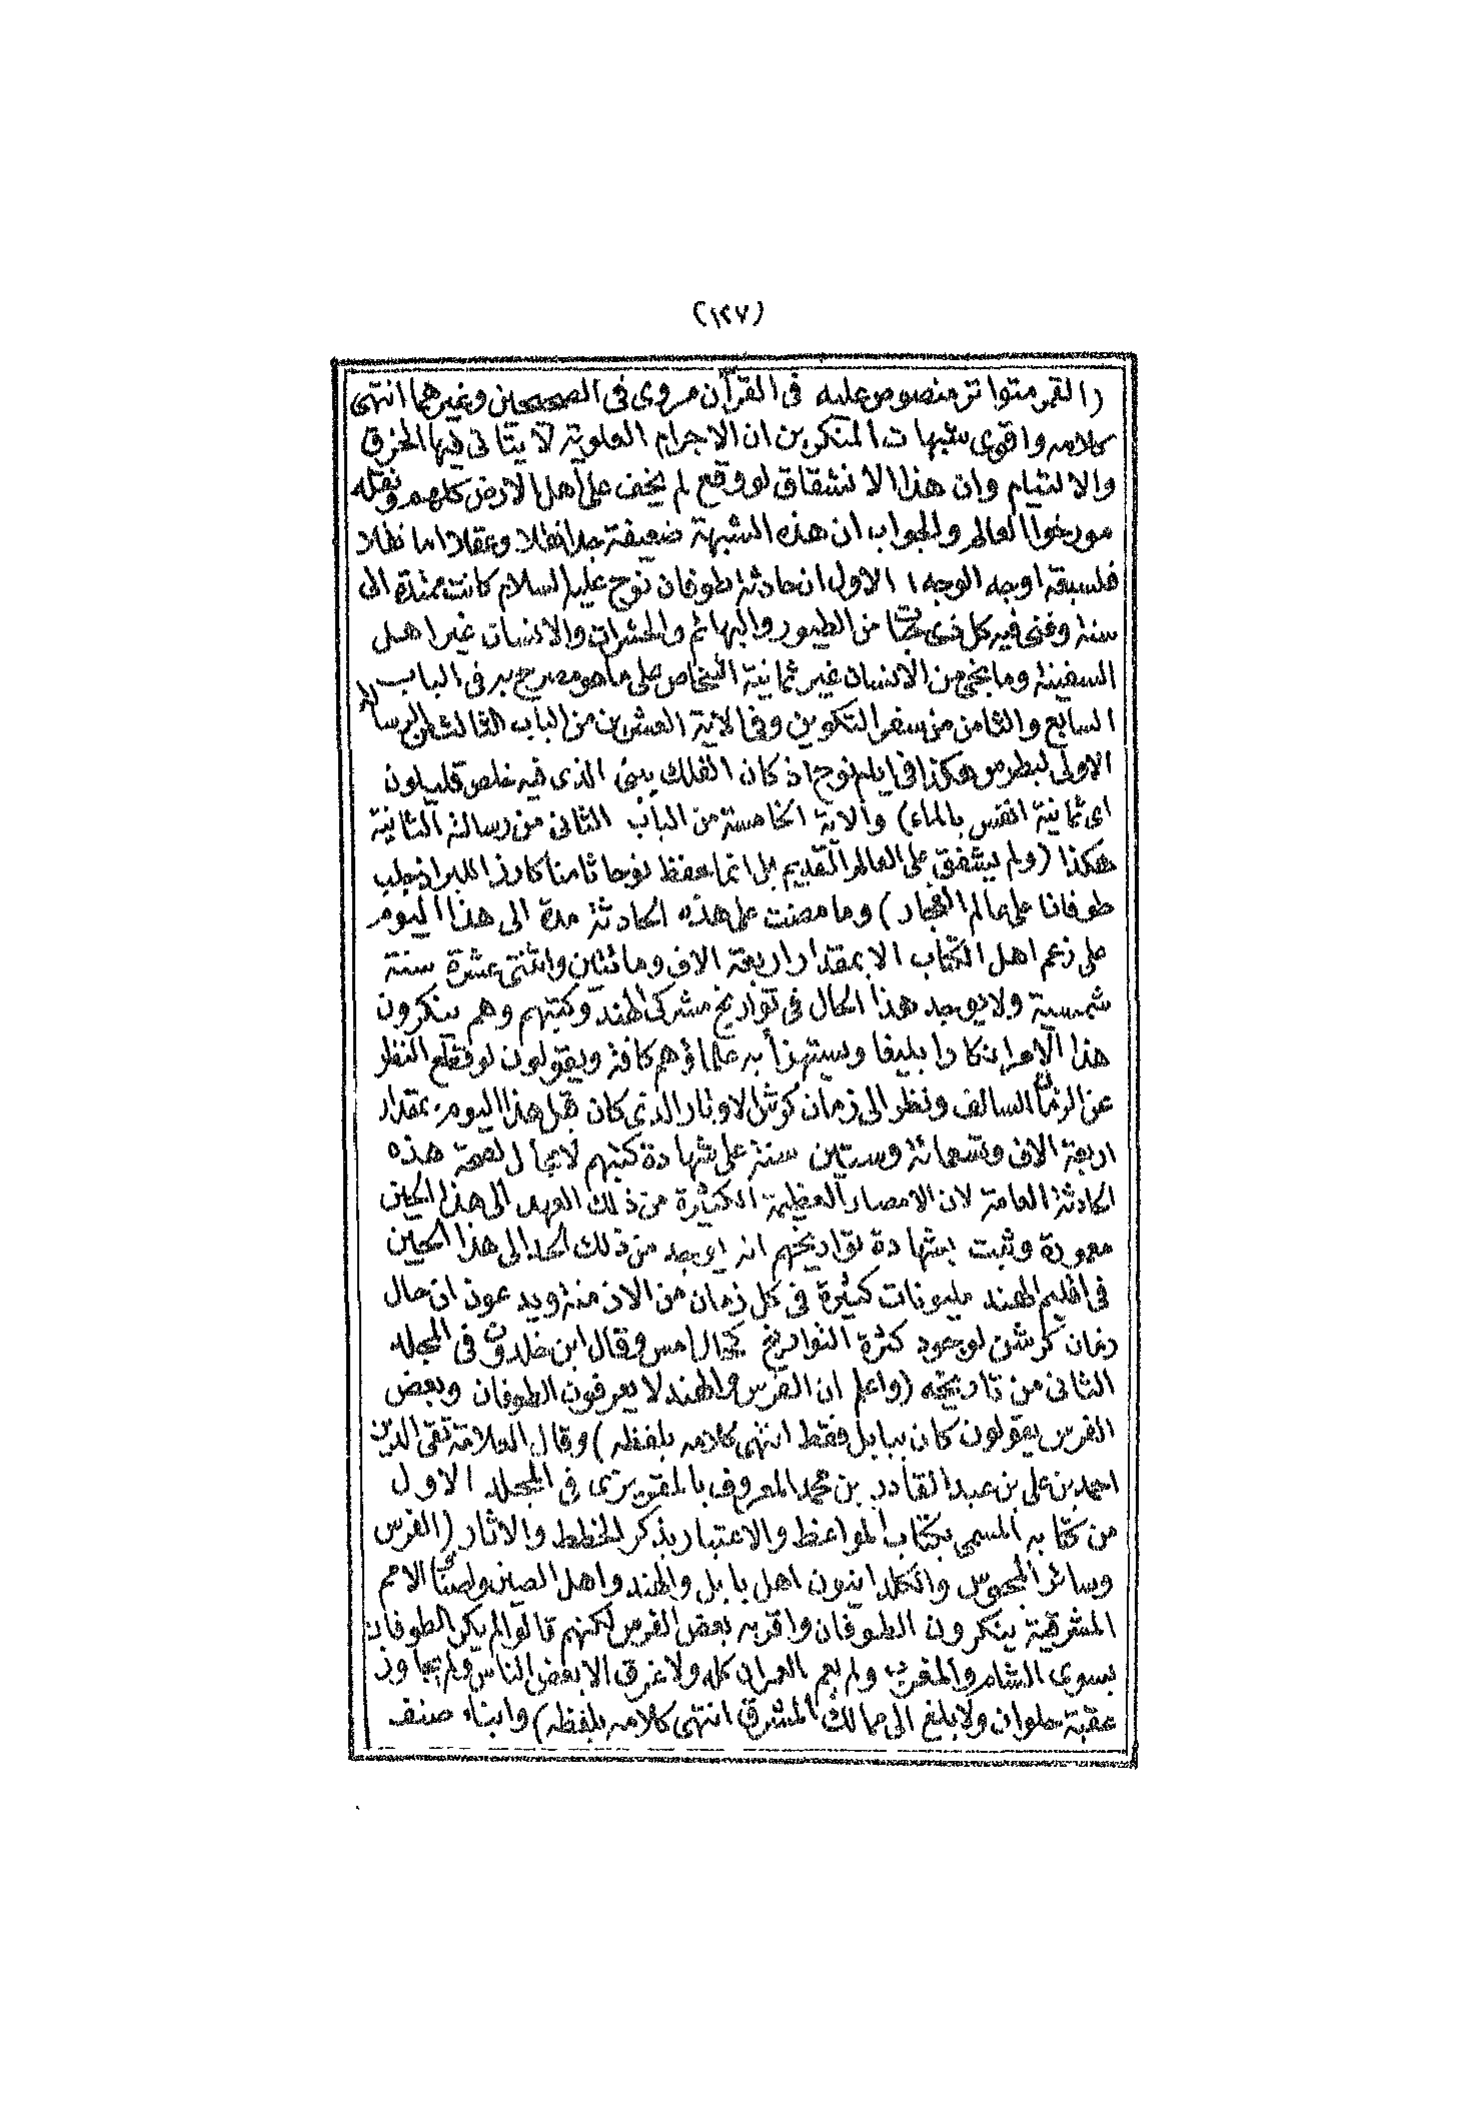 (١٢٧)
(القمر متواتر منصوص عليه فى القرآن مروى فى الصحيحين وغيرهما انتهى
كلامه واقوى شبهات المنكرين ان الاجرام العلوية لا يتأتى فيها الخرق
والالتيام وان هذا الانشقاق لو وقع لم يخف على اهل الارض كلهم ونقله
مورخوا العالم والجواب ان هذه الشبهة ضعيفة جدا نقلا وعقلا اما نقلا
فلسبعة اوجه الوجه الاول ان حادثة طوفان نوح عليه السلام كانت ممتدة الى
سنة وفنى فيه كل ذى حيات من الطيور والبهائم والحشرات والانسان غير اهل
السفينة وما نجى من الانسان غير ثمانية اشخاص على ما هو مصرح به فى الباب
السابع والثامن من سفر التكوين وفى الاية العشرين من الباب الثالث من الرسالة
الاولى لبطرس هكذا فى ايام نوح اذ كان الفلك يبنى الذى فيه خلص قليلون
اى ثمانية انفس بالماء) والاية الخامسة من الباب الثانى من رسالته الثانية
هكذا (ولم يشفق على العالم القديم بل انما حفظ نوحا ثامنا كارزا للبر اذ جلب
طوفانا على عالم الفجار) وما مضت على هذه الحادثة مدة الى هذا اليوم
على زعم اهل الكتاب الا بمقدار اربعة الاف ومائتين واثنتى عشرة سنة
شمسية ولا يوجد هذا الحال فى تواريخ مشركى الهند وكتبهم وهم ينكرون
هذا الامر انكارا بليغا ويستهزأ به علماؤهم كافة ويقولون لو قطع النظر
عن الزمان السالف ونظر الى زمان كرشن الاوتار الذى كان قبل هذا اليوم بمقدار
اربعة الاف وتسعمائة وستين سنة على شهادة كتبهم لا مجال لصحة هذه
الحادثة العامة لان الامصار العظيمة الكثيرة من ذلك العهد الى هذا الحين
معمورة وثبت بشهادة تواريخهم انه يوجد من ذلك الحد الى هذا الحين
فى اقليم الهند مليونات كثيرة فى كل زمان من الازمنة ويدعون ان حال
زمان كرشن لوجود كثرة التواريخ كحال امس وقال ابن خلدون فى المجلد
الثانى من تاريخه (واعلم ان الفرس والهند لا يعرفون الطوفان وبعض
الفرس يقولون كان ببابل فقط انتهى كلامه بلفظه) وقال العلامة تقى الدين
احمد بن على بن عبد القادر بن محمد المعروف بالمقريزى فى المجلد الاول
من كتابه المسمى بكتاب المواعظ والاعتبار بذكر الخطط والاثار (الفرس
وسائر المجوس والكلدانيون اهل بابل والهند واهل الصين واصناف الامم
المشرقية ينكرون الطوفان واقر به بعض الفرس لكنهم قالوا لم يكن الطوفان
بسوى الشام والمغرب ولم يعم العمران كله ولا غرق الا بعض الناس ولم يجاوز
عقبة حلوان ولا بلغ الى ممالك المشرق انتهى كلامه بلفظه) وابناء صنف